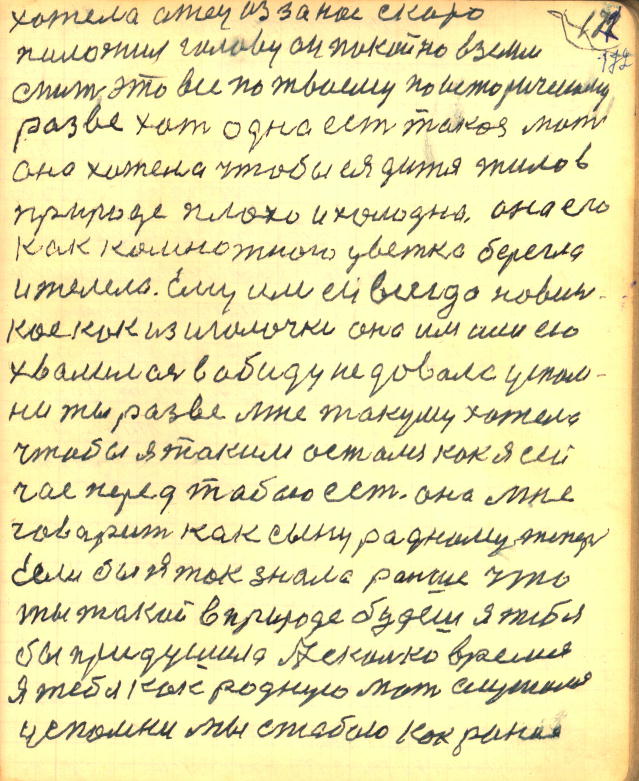 хотела отец из за нас скоро 172
положил голову он покойно в земли 172
спит. это все по твоему по историческому
разве хот одна ест такоя мат
она хотела чтобы ея дитя жило в
природе плохо и холодна. она его
как комнотного цветка берегла
и телела. Ему им ей всегда новин-
кое как из иголочки она им или ею
хвалилася в абиду не довала успом-
ни ты разве мне такуму хотела
чтобы я таким осталя как я сей
час перед табою ест. она мне
говарит как сыну радному тепер
Если бы я так знала раньше что
ты такой в природе будеш я тебя
бы придушила А сколко время
я тебя как родную мат слушался
успомни мы стабою как раньше